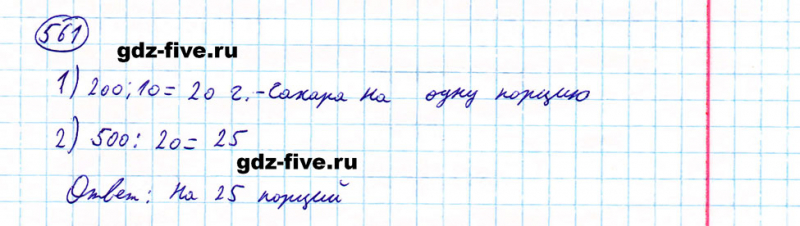 561
gdz-five.ru
1) 200:10= 20 г.-Сахара на одну порцию
2) 500: 20= 25
gdz-five.ru
Ответ: На 25 порций